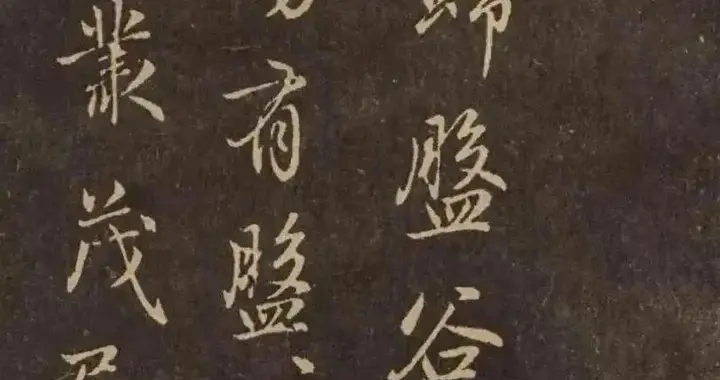 歸盤谷
有盤
叢茂